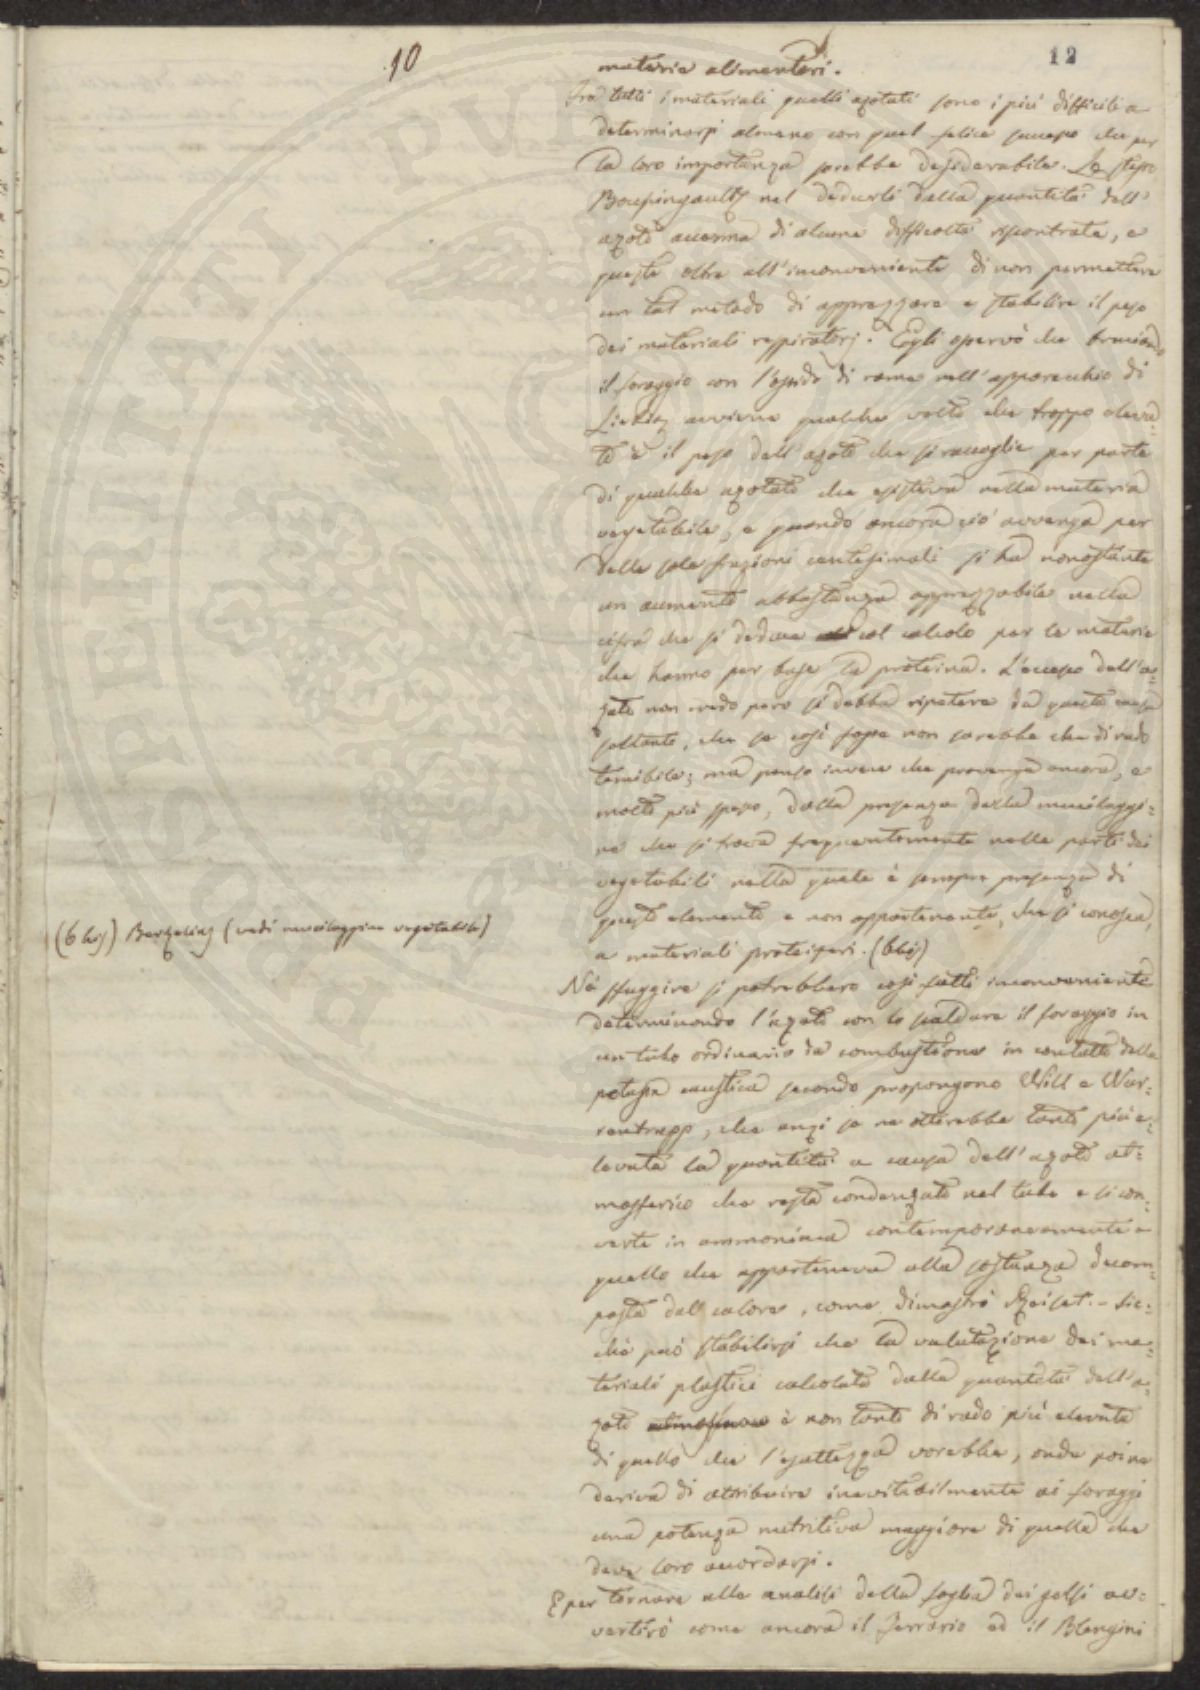 10
12
materie alimentari.
Fra tutti i materiali quelli azotati sono i più difficili a
determinarsi almeno con quel felice successo che per
la loro importanza sarebbe desiderabile. Lo stesso
Boussingault nel dedurli dalla quantità dell'
azoto accenna di alcune difficoltà riscontrate, e
queste oltre all'inconveniente di non permettere
un tal metodo di apprezzare e stabilire il peso
dei materiali respiratorj. Egli osservò che bruciando
il foraggio con l'ossido di rame nell'apparecchio di
Liebig avviene qualche volta che troppo eleva-
to è il peso dell'azoto che si raccoglie per parte
di qualche azotato che esisteva nella materia
vegetabile, e quando ancora ciò avvenga per
delle sole frazioni centesimali si ha nonostante
un aumento abbastanza apprezzabile nella
cifra che si deduce col calcolo per le materie
che hanno per base la proteina. L'eccesso dell'a-
zoto non credo però si debba ripetere da questa causa
soltanto, che se così fosse non sarebbe che di rado
temibile; ma penso invece che provenga ancora, e
molto più spesso, dalla presenza della mucilaggi-
ne che si trova frequentemente nelle parti dei
vegetabili nella quale è sempre presenza di
questo elemento e non appartenente, che si conosca,
a materiali proteiferi. (6 bis)
(6 bis) Berzelius (vedi mucilaggine vegetabile)
Nè sfuggire si potrebbero così fatti inconvenienti
determinando l'azoto con lo scaldare il foraggio in
un tubo ordinario da combustione in contatto della
potassa caustica secondo propongono Will e War-
rentrapp, che anzi se ne otterebbe tanto più e-
levata la quantità a causa dell'azoto at-
mosferico che resta condenzato nel tubo e si con-
verte in ammoniaca contemporaneamente a
quello che apparteneva alla sostanza decom-
posta dal calore, come dimostrò Reiset. - Sic-
chè può stabilirsi che la valutazione dei ma-
teriali plastici calcolata dalla quantità dell'a-
zoto è non tanto di rado più elevata
di quello che l'esattezza vorebbe, onde poi ne
deriva di attribuire inevitabilmente ai foraggi
una potenza nutritiva maggiore di quella che
deve loro accordarsi.
E per tornare alle analisi della foglia dei gelsi av-
vertirò come ancora il Ferrario ed il Blengini